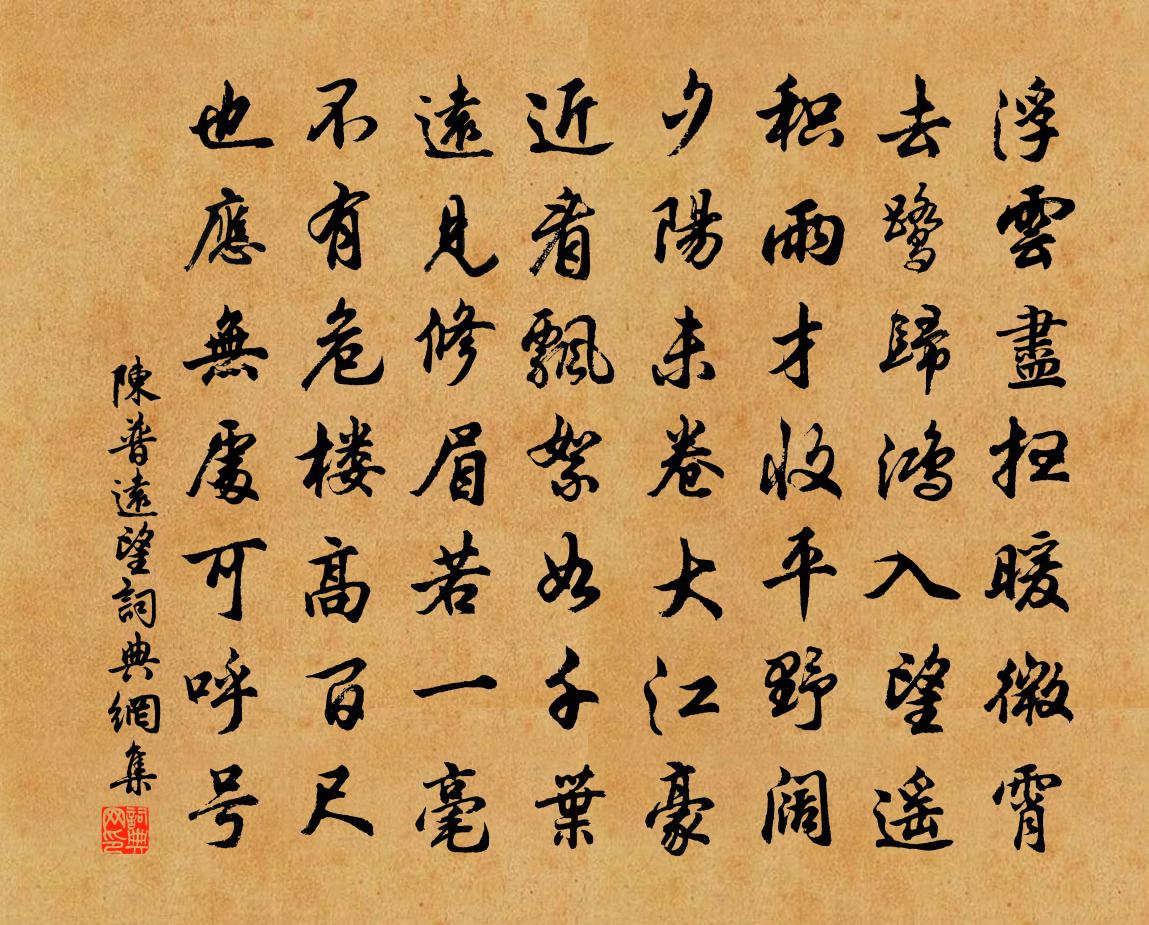 浮雲盡扫暖微霄
去鷺歸鸿入望遥
积雨才收平野阔
夕陽未卷大江豪
近看飄絮如千葉
遠見修眉若一毫
不有危楼高百尺
也應無處可呼号
陳普遠望詞典網集
詞典网印